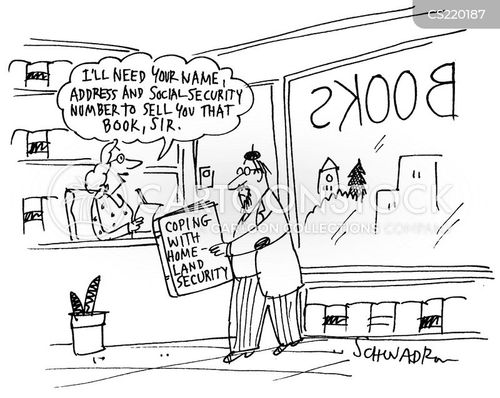 CS220187
I'LL NEED YOUR NAME,
ADDRESS AND SOCIAL-SECURITY
NUMBER TO SELL YOU THAT
BOOK, SIR.
BOOKS
COPING
WITH
HOME-
LAND
SECURITY
CARTOONSTOCK
CARTOON COLLECTIONS COMPANY
SCHWADRON